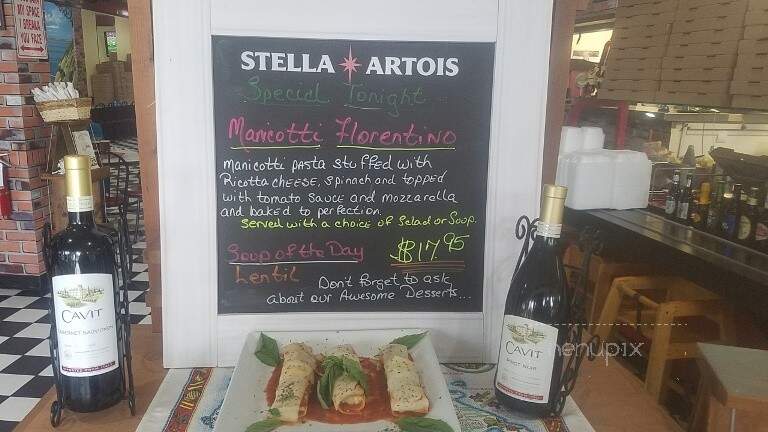 STELLA ARTOIS
Special Tonight
Manicotti Florentino
Manicotti Pasta Stuffed with
Ricotta CHEESE, Spinach and topped
with tomato sauce and mozzarella
and baked to perfection
Served with a choice of Salad or Soup.
$17.95
Soup of the Day
Lentil
Don't forget to ask
about our Awesome Desserts...
MY SPACE
I BREAK
YOU FACE
CAVIT
CABERNET SAUVIGNON
CAVIT
PINOT NOIR
menupix